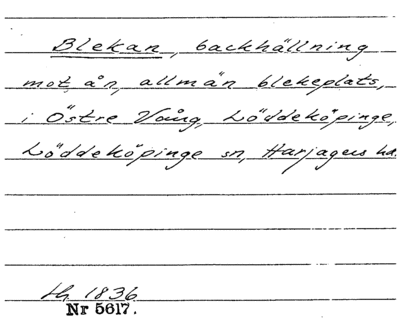 Blekan, backhällning
mot ån, allmän blekeplats,
i Östre Vång, Löddeköpinge,
Löddeköpinge sn, Harjagers hd.
1836
Nr 5617.